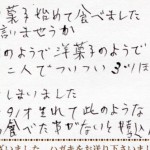 菓子始めて食べました
言いますか
のようで洋菓子のようで
二人でついつい
しまいました
生れて此のような
食べた事がないと
ました、ハガキをお送り下さいま